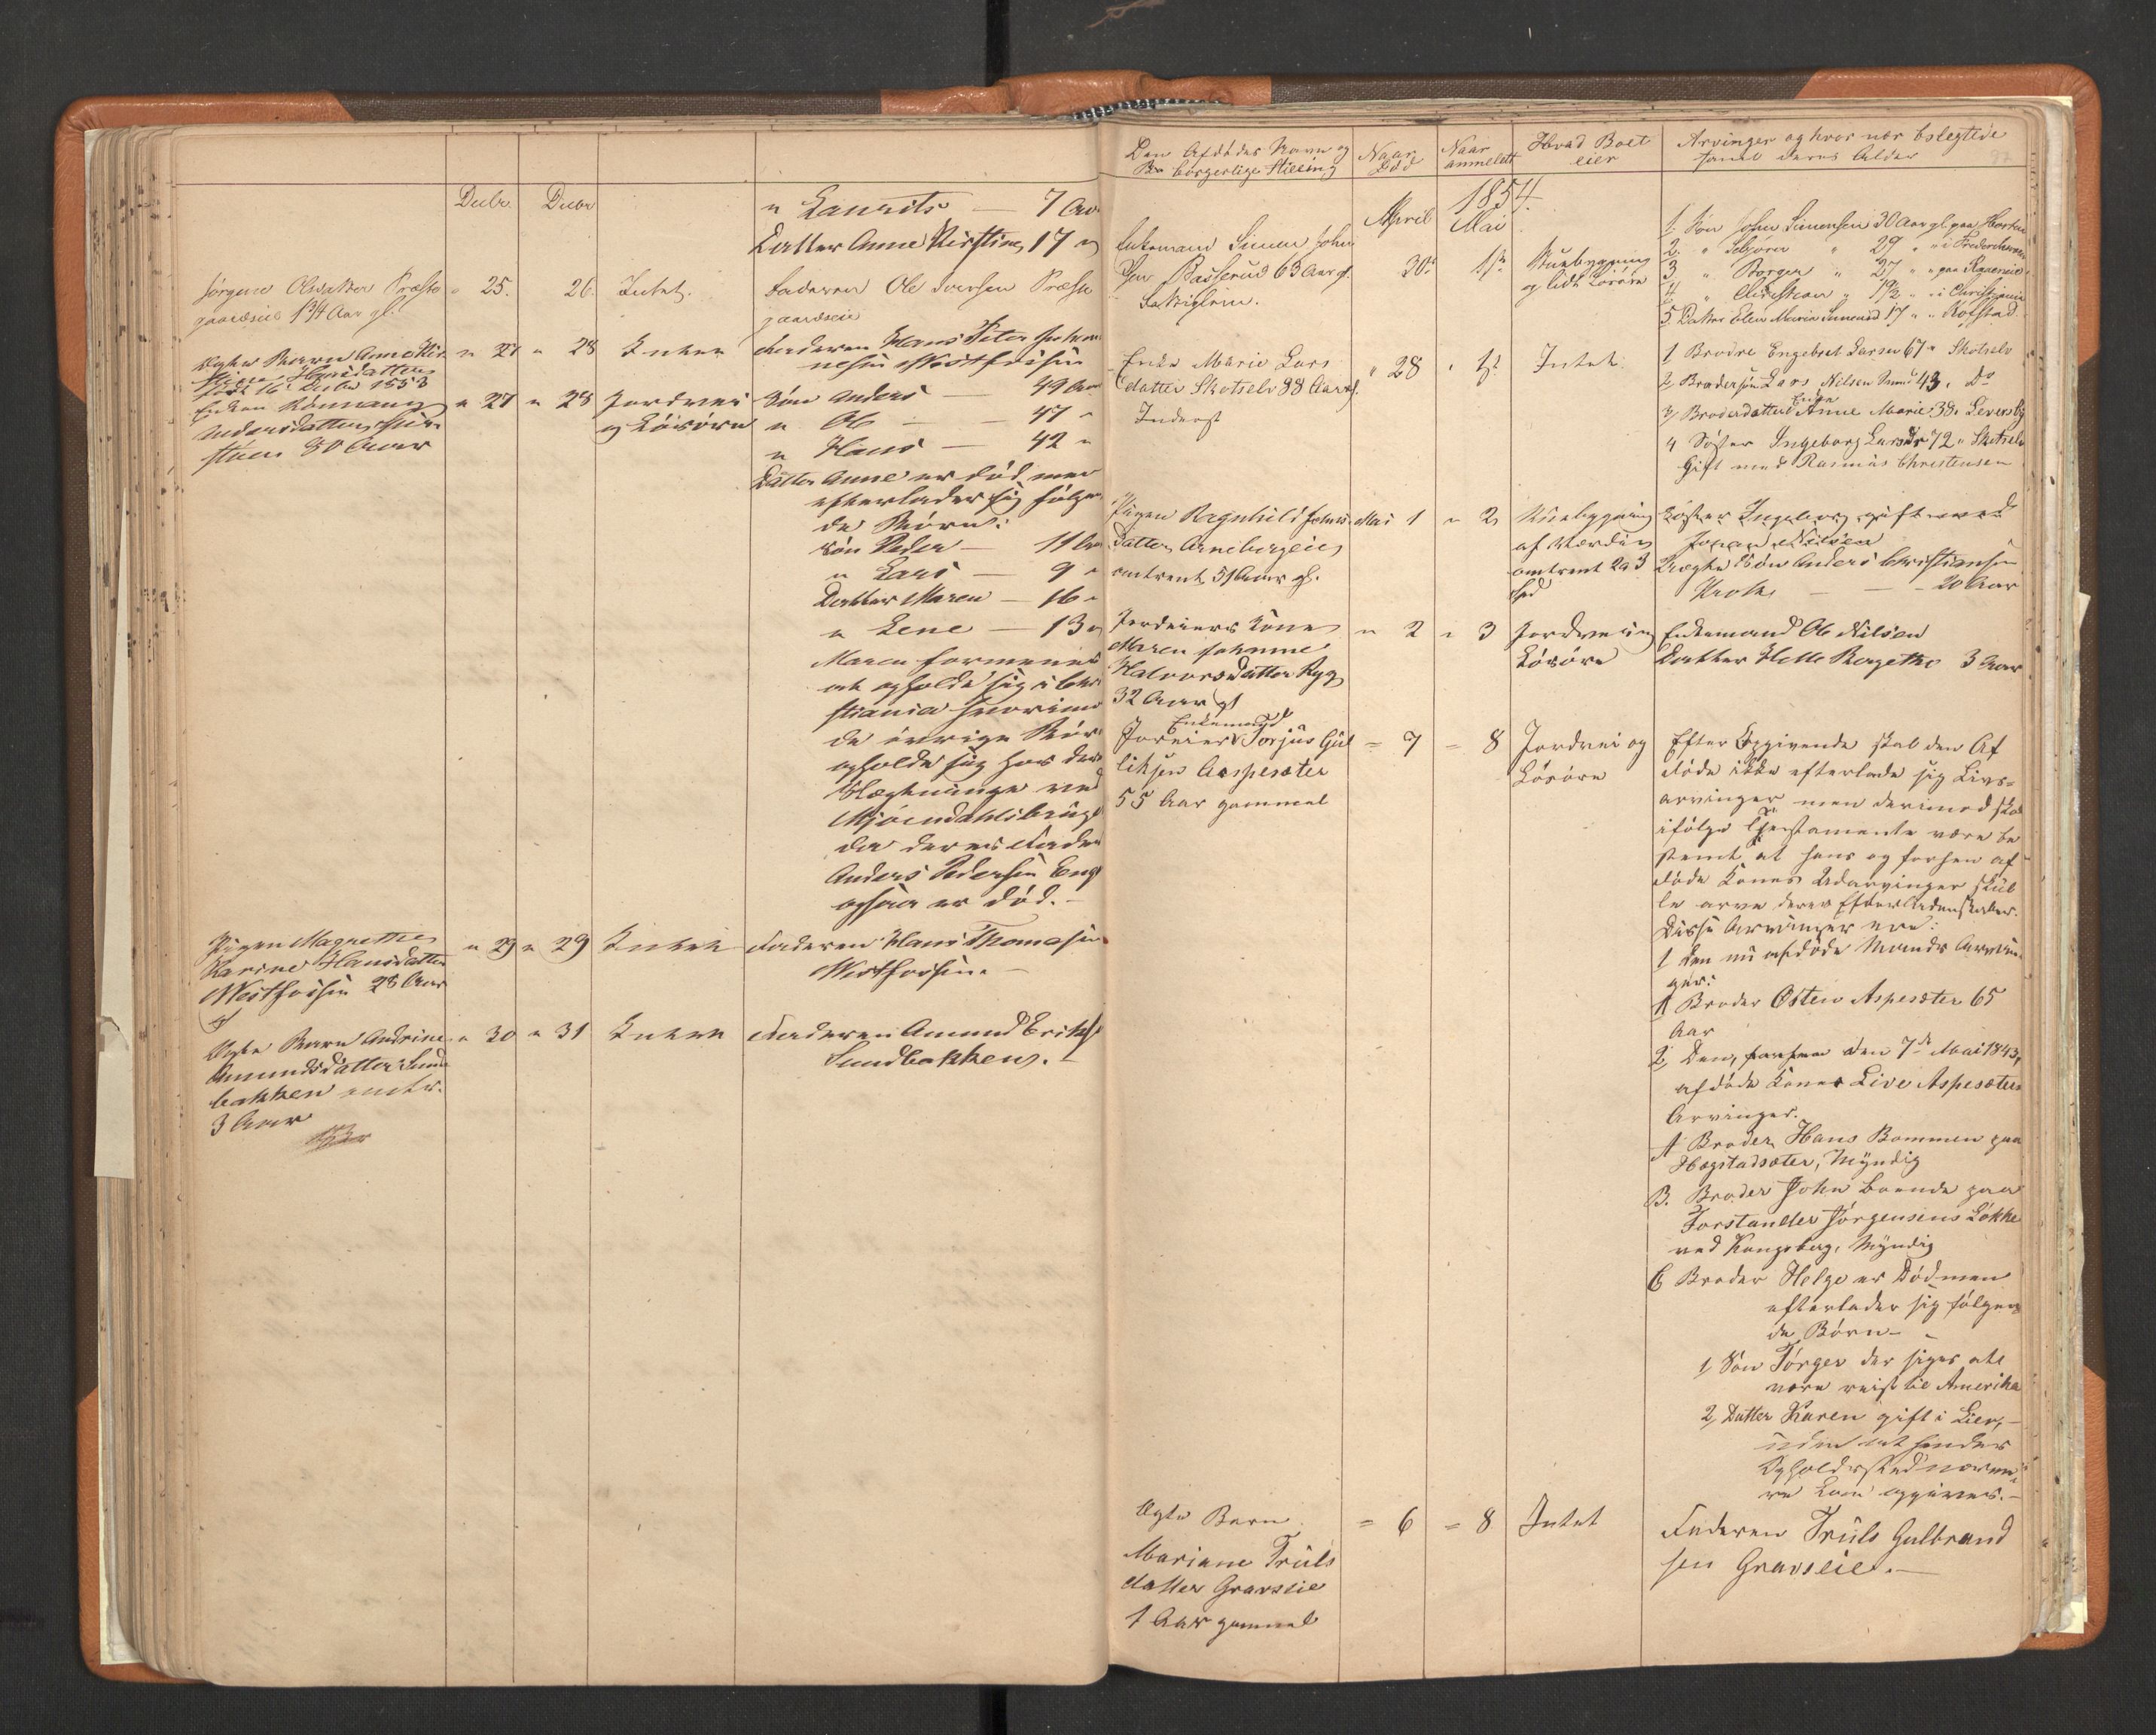 Decbr. Decbr
" Laurits — 7 Aar
Datter Anne Kirstine 17 "
Jørgine Olsdatter Præste
gaardseie 1 3/4 Aar gl.
" 25. 26. Intet.
Faderen Ole Iversen Præste
gaardseie
Ægte Barn Anne Kir
stine Hansdatter
født 16 Decbr 1853
" 27 " 28 Intet
Faderen Hans Peter Johan
nesen Vestfossen
Enken
Andersdatter
80 Aar
" 27 " 28 Jordvei
og Løsøre
Søn Anders — 49 Aar
" Ole — 47 "
" Hans — 42 "
Datter Anne er død men
efterlader sig følgen
de Børn:
Søn Peder — 11 Aar
" Lars — 9 "
Datter Maren — 16 "
" Lene — 13 "
Maren formenes
at opholde sig i Chri
stiania hvorimod
de øvrige Børn
opholde sig hos deres
Slægtninge ved
Mjøendahlsbruge
da deres Fader
Anders Pedersen Eng
ogsaa er død. —
Pigen Magrethe
Karine Hansdatter
Westfossen 28 Aar
gl
" 29 " 29 Intet
Faderen Hans Thomasen
Westfossen. —
Ægte Barn Andrine
Amundsdatter Sund
bakken omtr.
3 Aar
" 30 " 31 Intet
Faderen Amund Eriks
Sundbakken. —
Den Afdødes Navn og
Borgerlige Stilling
Naar
Død
Naar
anmeldt
Hvad Boet
eier
Arvinger og hvor nær beslegtede
samt deres Alder
1854.
April Mai
Enkemand Simen John
sen Basserud 63 Aar gl.
30te 1ste Stuebygning
og lidt Løsøre
1. Søn John Simensen 30 Aar gl. paa Horten
2. " " 29 " " i Frederiksværn
3 " Borger " 27 " " paa
4 " Christian " 19 1/2 " " i Christiania
5 Datter Elen Maria Simensd 17 " " Kolstad
Enke Marie Lars
datter Skotselv 88 Aar gl.
Inderst
" 28 " 1ste Intet
1 Brodre Engebret Larsen 67 " Skotselv
2, Brodersøn Lars Nilsen 43 " Do
3, Broderdatter Enke Anne Marie 38 "
4 Søster Ingeborg Larsdtr 72 " Skotselv
Gift med Rasmus Christensen
Pigen Ragnhild Johns
datter Arnebergeie
omtrent 51 Aar gl.
Mai 1 " 2 Stuebygning
af Værdi
omtrent 2 a 3
Spd
Søster Ingeborg gift med
Johan Nilsen
Uægte Søn Anders Christiansen
— — 20 Aar
Jordeiers Kone
Maren Johanne
Halvorsdatter Ryg
32 Aar gl
" 2 " 3 Jordvei og
Løsøre
Enkemand Ole Nilsen
Datter Helle Ragethe 3 Aar
Enkemand
Jordeier Torjus Gul
liksen Aaspesæter
55 Aar gammel
= 7 = 8 Jordvei og
Løsøre
Efter Opgivende skal den Af
døde ikke efterlade sig Livs=
arvinger men derimod skal
ifølge Testamente være be
stemt at hans og forhen af
døde Kones Udarvinger skul
le arve deres Efterladenskaber.
Disse Arvinger ere:
1 den nu afdøde Mands Arvin
ger:
A Broder Østen Aspesæter 65
Aar
2, Den, forhen den 7de Mai 1843,
afdøde Kones Live Aspesæters
Arvinger.
A Broder Hans Bommen paa
Hogstadsæter, Myndig
B. Broder John boende paa
Forstander Jørgensens Løkke
ved Kongsberg, Myndig
C Broder Helge er Død men
efterlader sig følgen
de Børn —
1, Søn Torger der siges at
være reist til Amerika
2, Datter Karen gift i Lier, —
uden at hendes
Opholdssted nærme
re kan opgives. —
Ægte Barn
Mariane Truls
datter Gravseie
1 Aar gammel
= 6 = 8 Intet
Faderen Truls Gulbrand
sen Gravseie. —